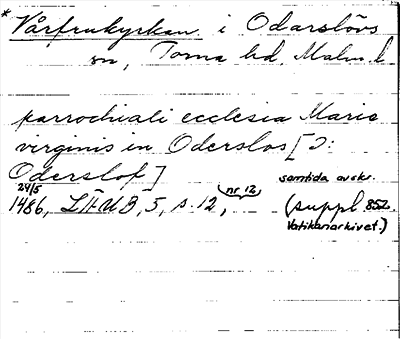 * Vårfrukyrkan i Odarslövs
sn, Torna hd. Malm. l.
parrochiali ecclesia Marie
virginis in Oderslos [Ɔ:
Oderslof] samtida avskr.
24/5 1486, LÄUB, 5, s. 12, nr 12, (suppl 852
Vatikanarkivet.)